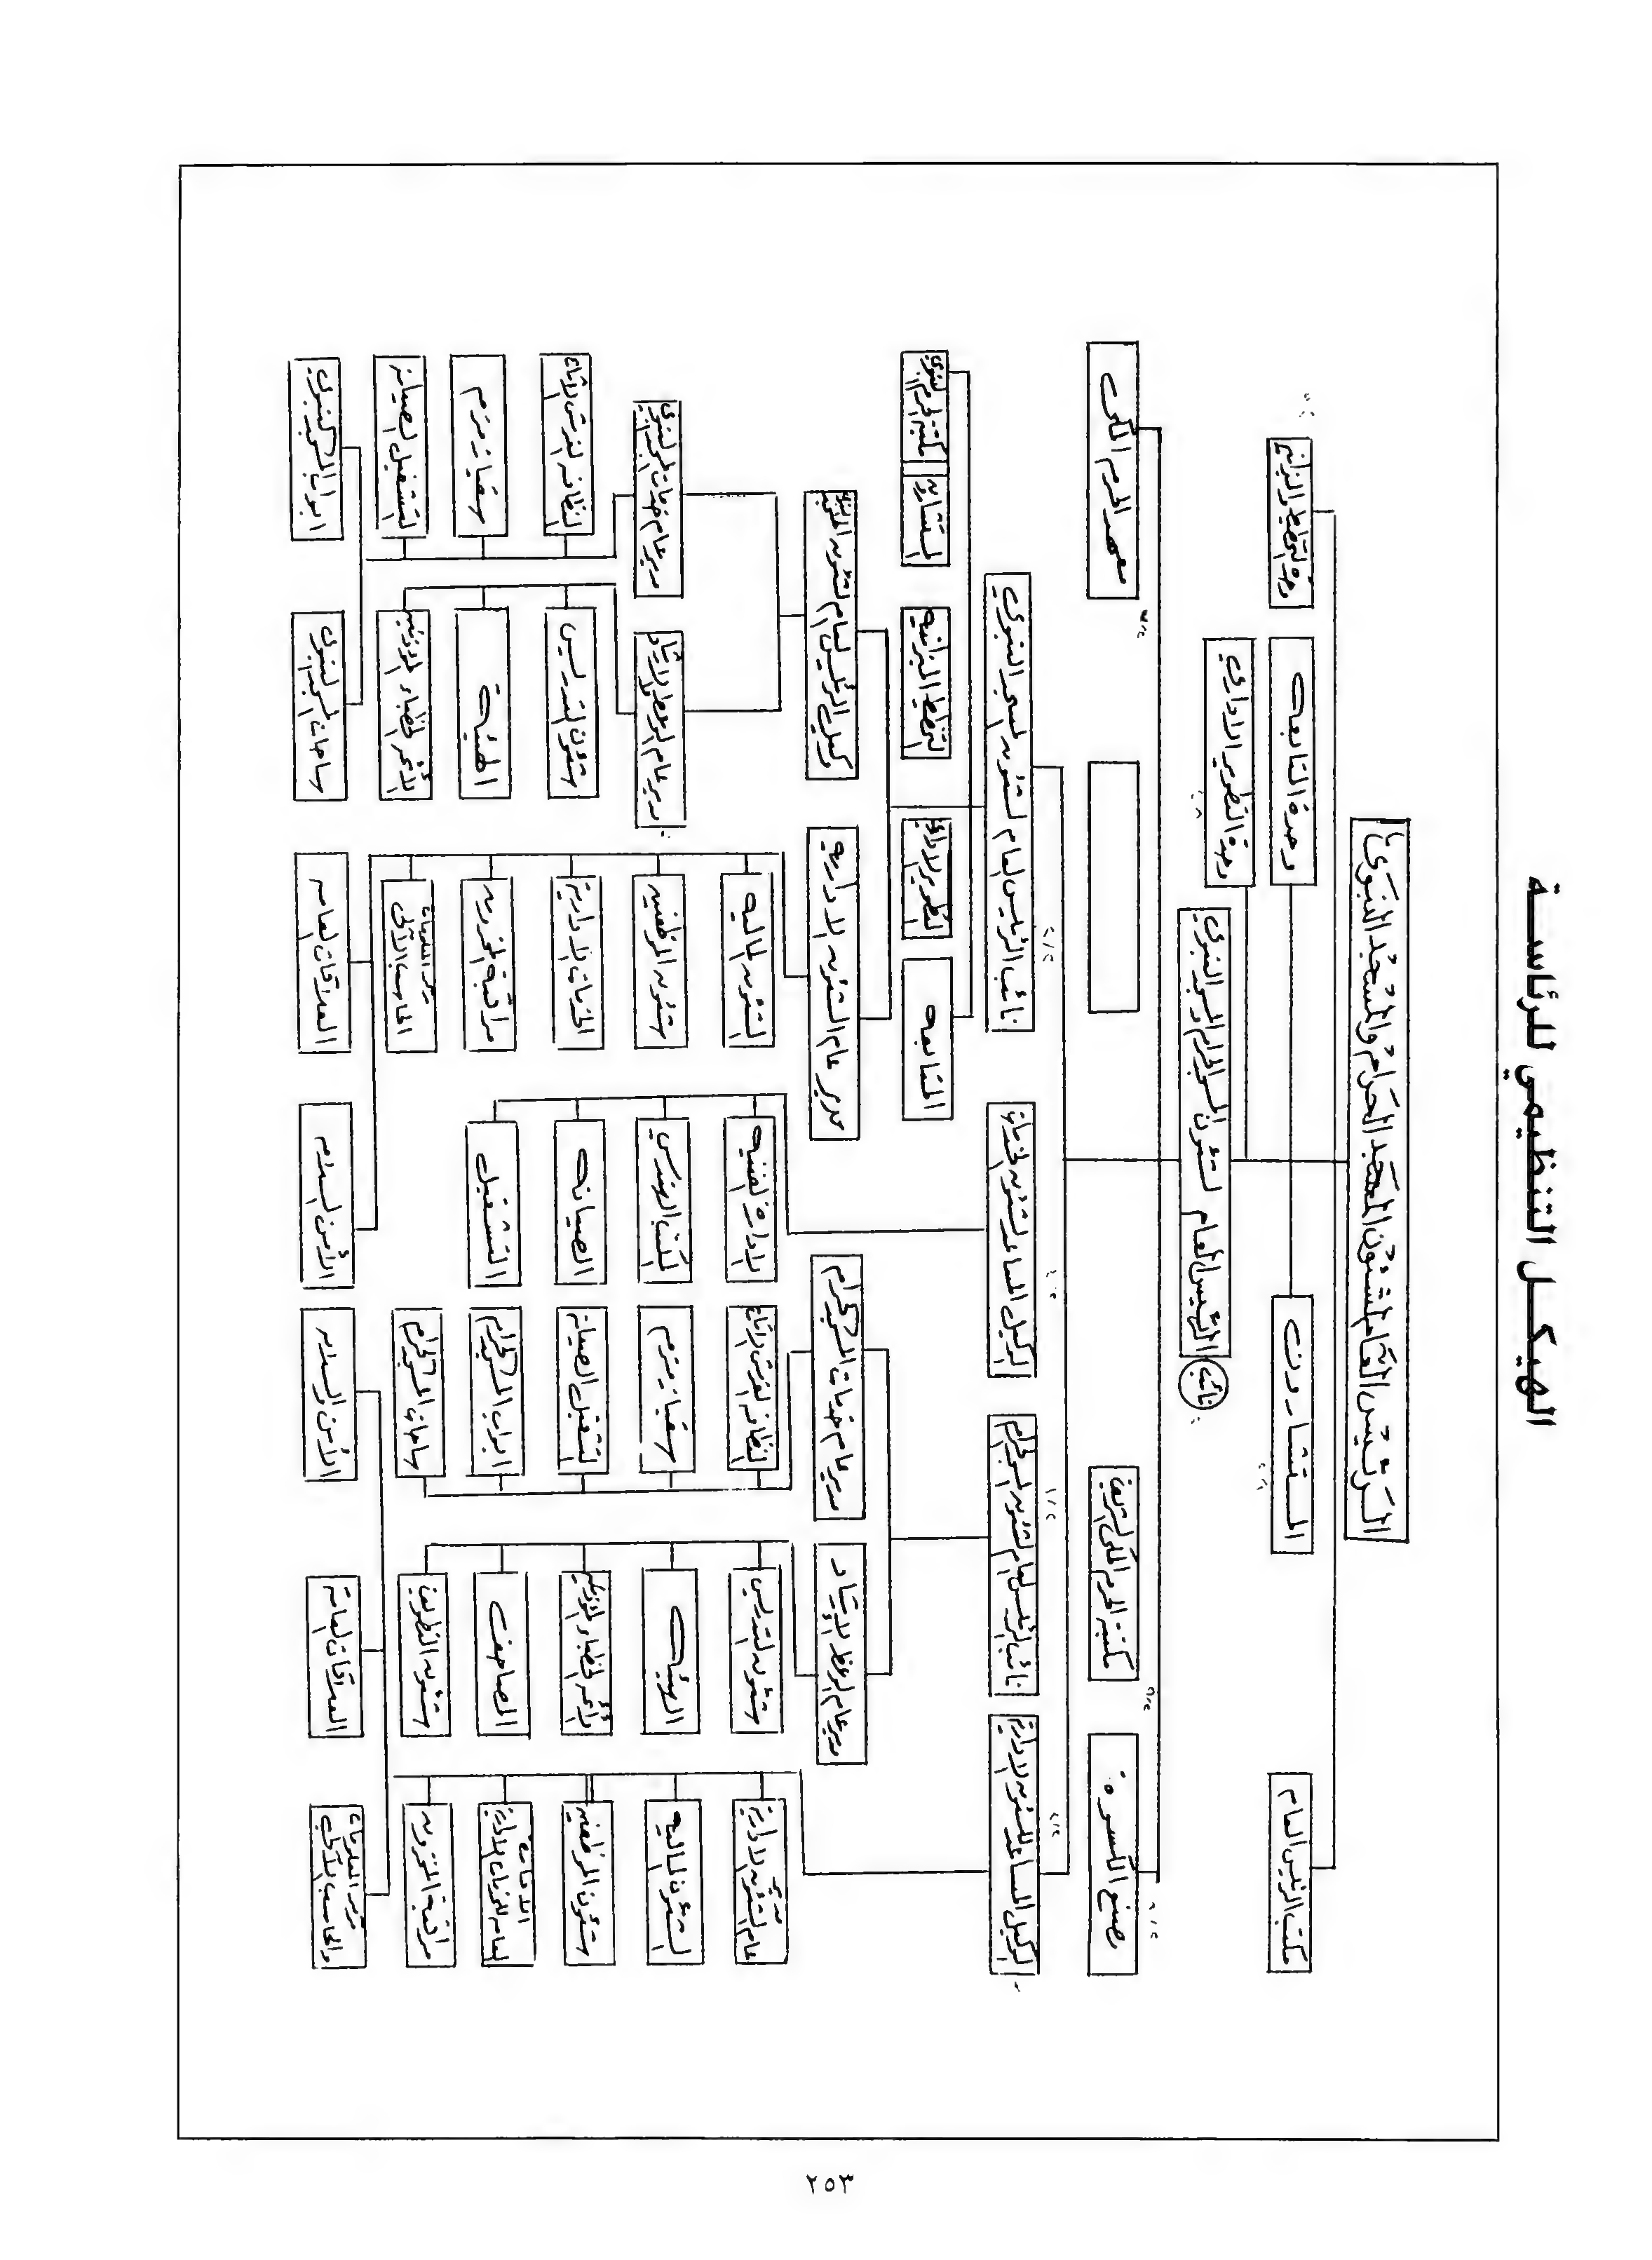 الهيكل التنظيمي للرئاسة
الرئيس العام لشئون المسجد الحرام والمسجد النبوي
مكتب الرئيس العام
المستشارون
وحدة المتابعه
وحدة التخطيط والميزانيه
وحدة التطوير الاداري
نائب
الرئيس العام لشئون المسجد الحرام والمسجد النبوي
مصنع الكسوة
مكتبة الحرم المكي الشريف
معهد الحرم المكي
الوكيل المساعد للشئون الادارية
نائب الرئيس العام لشئون المسجد الحرام
الوكيل المساعد لشئون الخدمات
نائب الرئيس العام لشئون المسجد النبوي
المتابعه
التطوير الاداري
التخطيط الميزانيه
المستشارون
مكتبة الحرم النبوي
مدير عام الوعظ والارشاد
مدير عام خدمات المسجد الحرام
مدير عام الشئون الاداريه
مدير عام الشئون الادارية
الشئون الماليه
شئون الموظفين
مراقبة المخزون
شئون التدريس
الهيئات
المصاحف
شئون التطويف
النظافه الفرش والابواب
سقيا زمزم
التشغيل الصيانة
ابواب المسجد الحرام
ساحات المسجد الحرام
الادارة الفنيه
المكتب الهندسي
الصيانه
التشغيل
الشئون الماليه
شئون الموظفين
الخدمات الادارية
مراقبة المخزون
مركز المعلومات
الحاسب الآلي
مدير عام الوعظ والارشاد
مدير عام خدمات المسجد النبوي
شئون التدريس
الهيئة
سقيا زمزم
التشغيل الصيانة
مركز المعلومات
والحاسب الآلي
العلاقات العامة
الأمن والسلامه
الأمن السلام
العلاقات العامه
ساحات المسجد النبوي
ابواب المسجد النبوي
٢٥٣